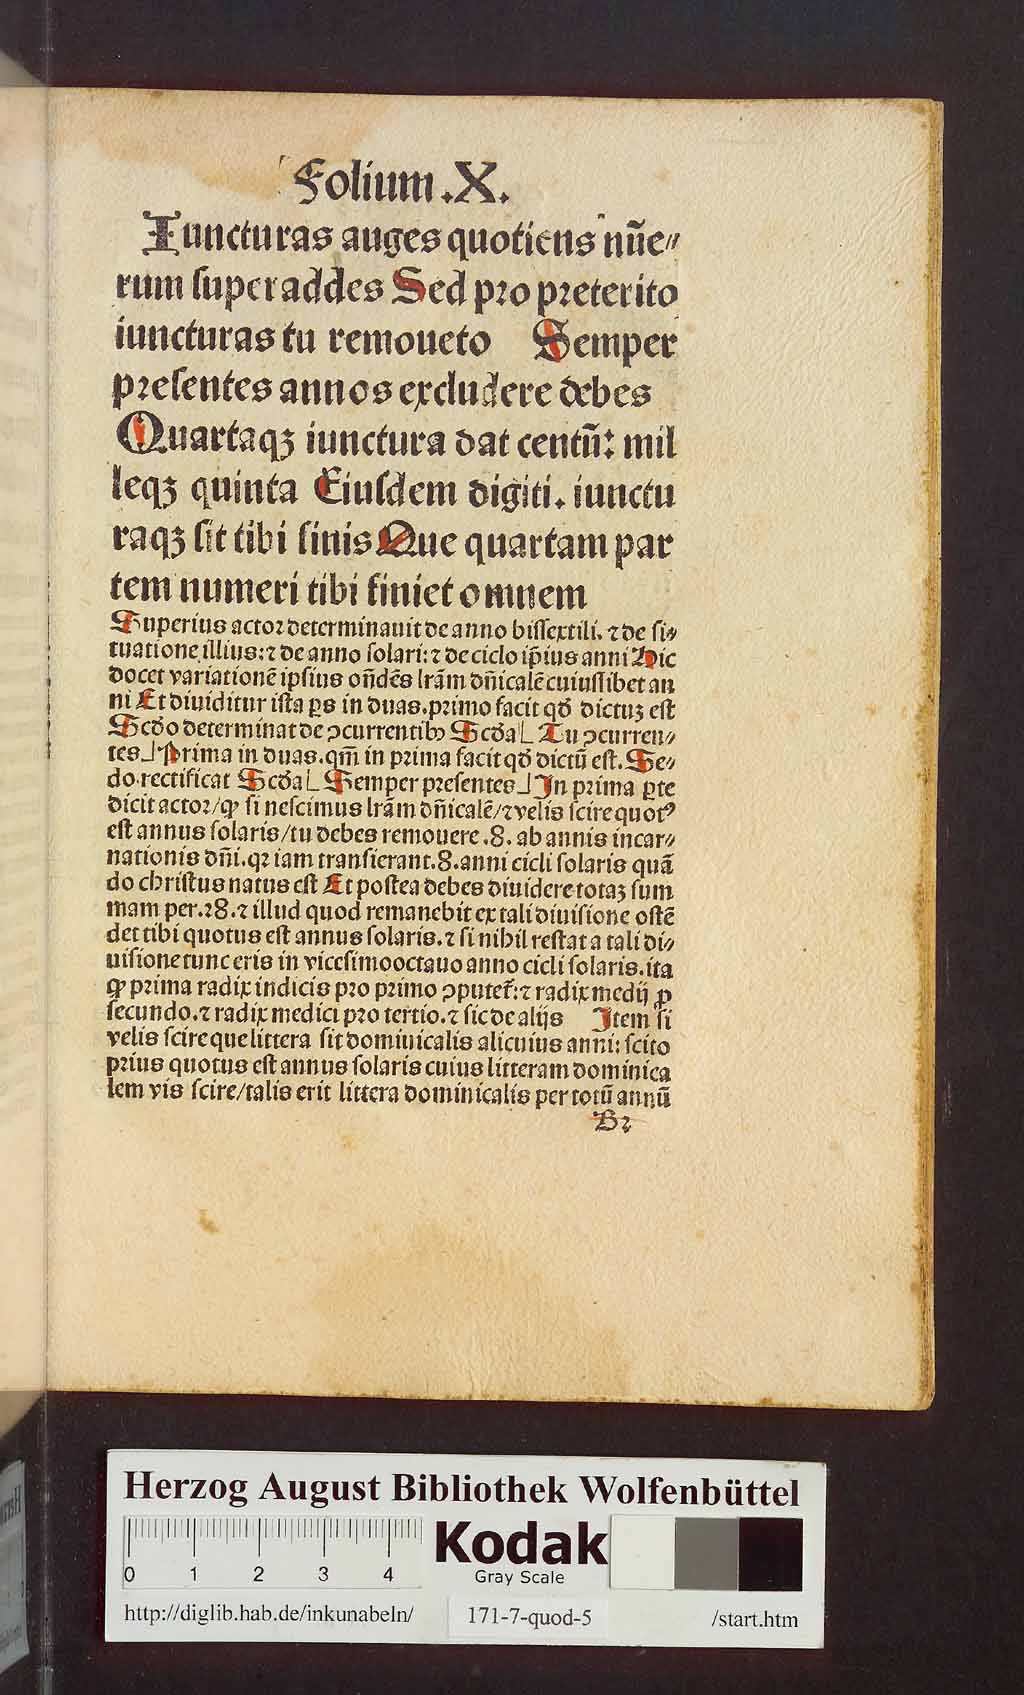 Folium .X.
Iuncturas auges quotiens nūe⸗
rum superaddes Sed pro preterito
iuncturas tu remoueto Semper
presentes annos excludere debes
Quartaqꝫ iunctura dat centū: mil
leqꝫ quinta Eiusdem digiti. iunctu
raqꝫ sit tibi finis Que quartam par
tem numeri tibi finiet omnem
Superius actor determinauit de anno bissextili. ⁊ de si⸗
tuatione illius: ⁊ de anno solari: ⁊ de ciclo ip̄ius anni Hic
docet variationē ipsius on̄dēs lrā̄m dn̄icalē cuiuslibet an
ni Et diuiditur ista ꝑs in duas. primo facit qd̄ dictuꝫ est
Scd̄o determinat de ↄcurrentibꝰ Scd̄a⌊ Tu ↄcurren⸗
tes⌋ Prima in duas. qm̄ in prima facit qd̄ dictū est. Se⸗
do. rectificat Scd̄a⌊ Semper presentes⌋ In prima ꝑte
dicit actor/ꝙ si nescimus lrā̄m dn̄icalē/⁊ velis scire quotꝰ
est annus solaris/tu debes remouere .8. ab annis incar⸗
nationis dn̄i. qꝛ iam transierant .8. anni cicli solaris quā
do christus natus est Et postea debes diuidere totaꝫ sum
mam per .28. ⁊ illud quod remanebit ex tali diuisione ostē
det tibi quotus est annus solaris. ⁊ si nihil restat a tali di⸗
uisione tunc eris in vicesimooctauo anno cicli solaris. ita
ꝙ prima radix indicis pro primo ↄputet᷑: ⁊ radix medij ꝓ
secundo. ⁊ radix medici pro tertio. ⁊ sic de alijs Item si
velis scire que littera sit domiuicalis alicuius anni: scito
prius quotus est annus solaris cuius litteram dominica
lem vis scire/talis erit littera dominicalis per totū annū
B2
Herzog August Bibliothek Wolfenbüttel
0 1 2 3 4
Kodak
Gray Scale
http://diglib.hab.de/inkunabeln/ 171-7-quod-5 /start.htm